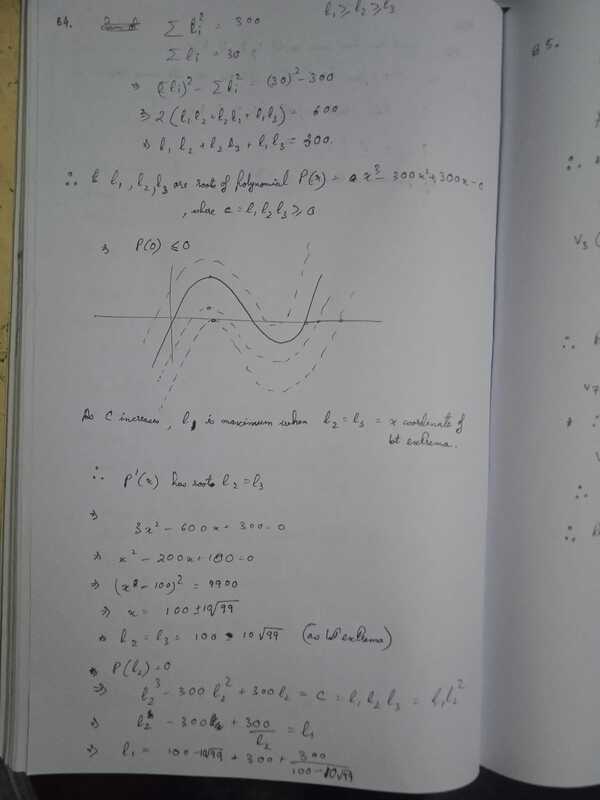 64. Σ l_i² = 300 l₁ ≥ l₂ ≥ l₃
Σ l_i = 30
⇒ (Σ l_i)² - Σ l_i² = (30)² - 300
⇒ 2(l₁l₂ + l₂l₃ + l₁l₃) = 600
⇒ l₁l₂ + l₂l₃ + l₁l₃ = 300.
∴ l₁, l₂, l₃ are roots of polynomial P(x) = x³ - 300x² + 300x - c
, where c = l₁l₂l₃ ≥ 0
⇒ P(0) ≤ 0
As C increases, l₁ is maximum when l₂ = l₃ = x coordinate of
1st extrema.
∴ P'(x) has roots l₂ = l₃
⇒
3x² - 600x + 300 = 0
⇒ x² - 200x + 100 = 0
⇒ (x - 100)² = 9900
⇒ x = 100 ± 10√99
⇒ l₂ = l₃ = 100 - 10√99 (as 1st extrema)
⇒ P(l₂) = 0
⇒ l₂³ - 300 l₂² + 300 l₂ = C = l₁l₂l₃ = l₁l₂²
⇒ l₂ - 300 + 300/l₂ = l₁
⇒ l₁ = 100 - 10√99 + 300 + 300/(100 - 10√99)
85.
∴
V₃ (
∴
V₇
∴
∴